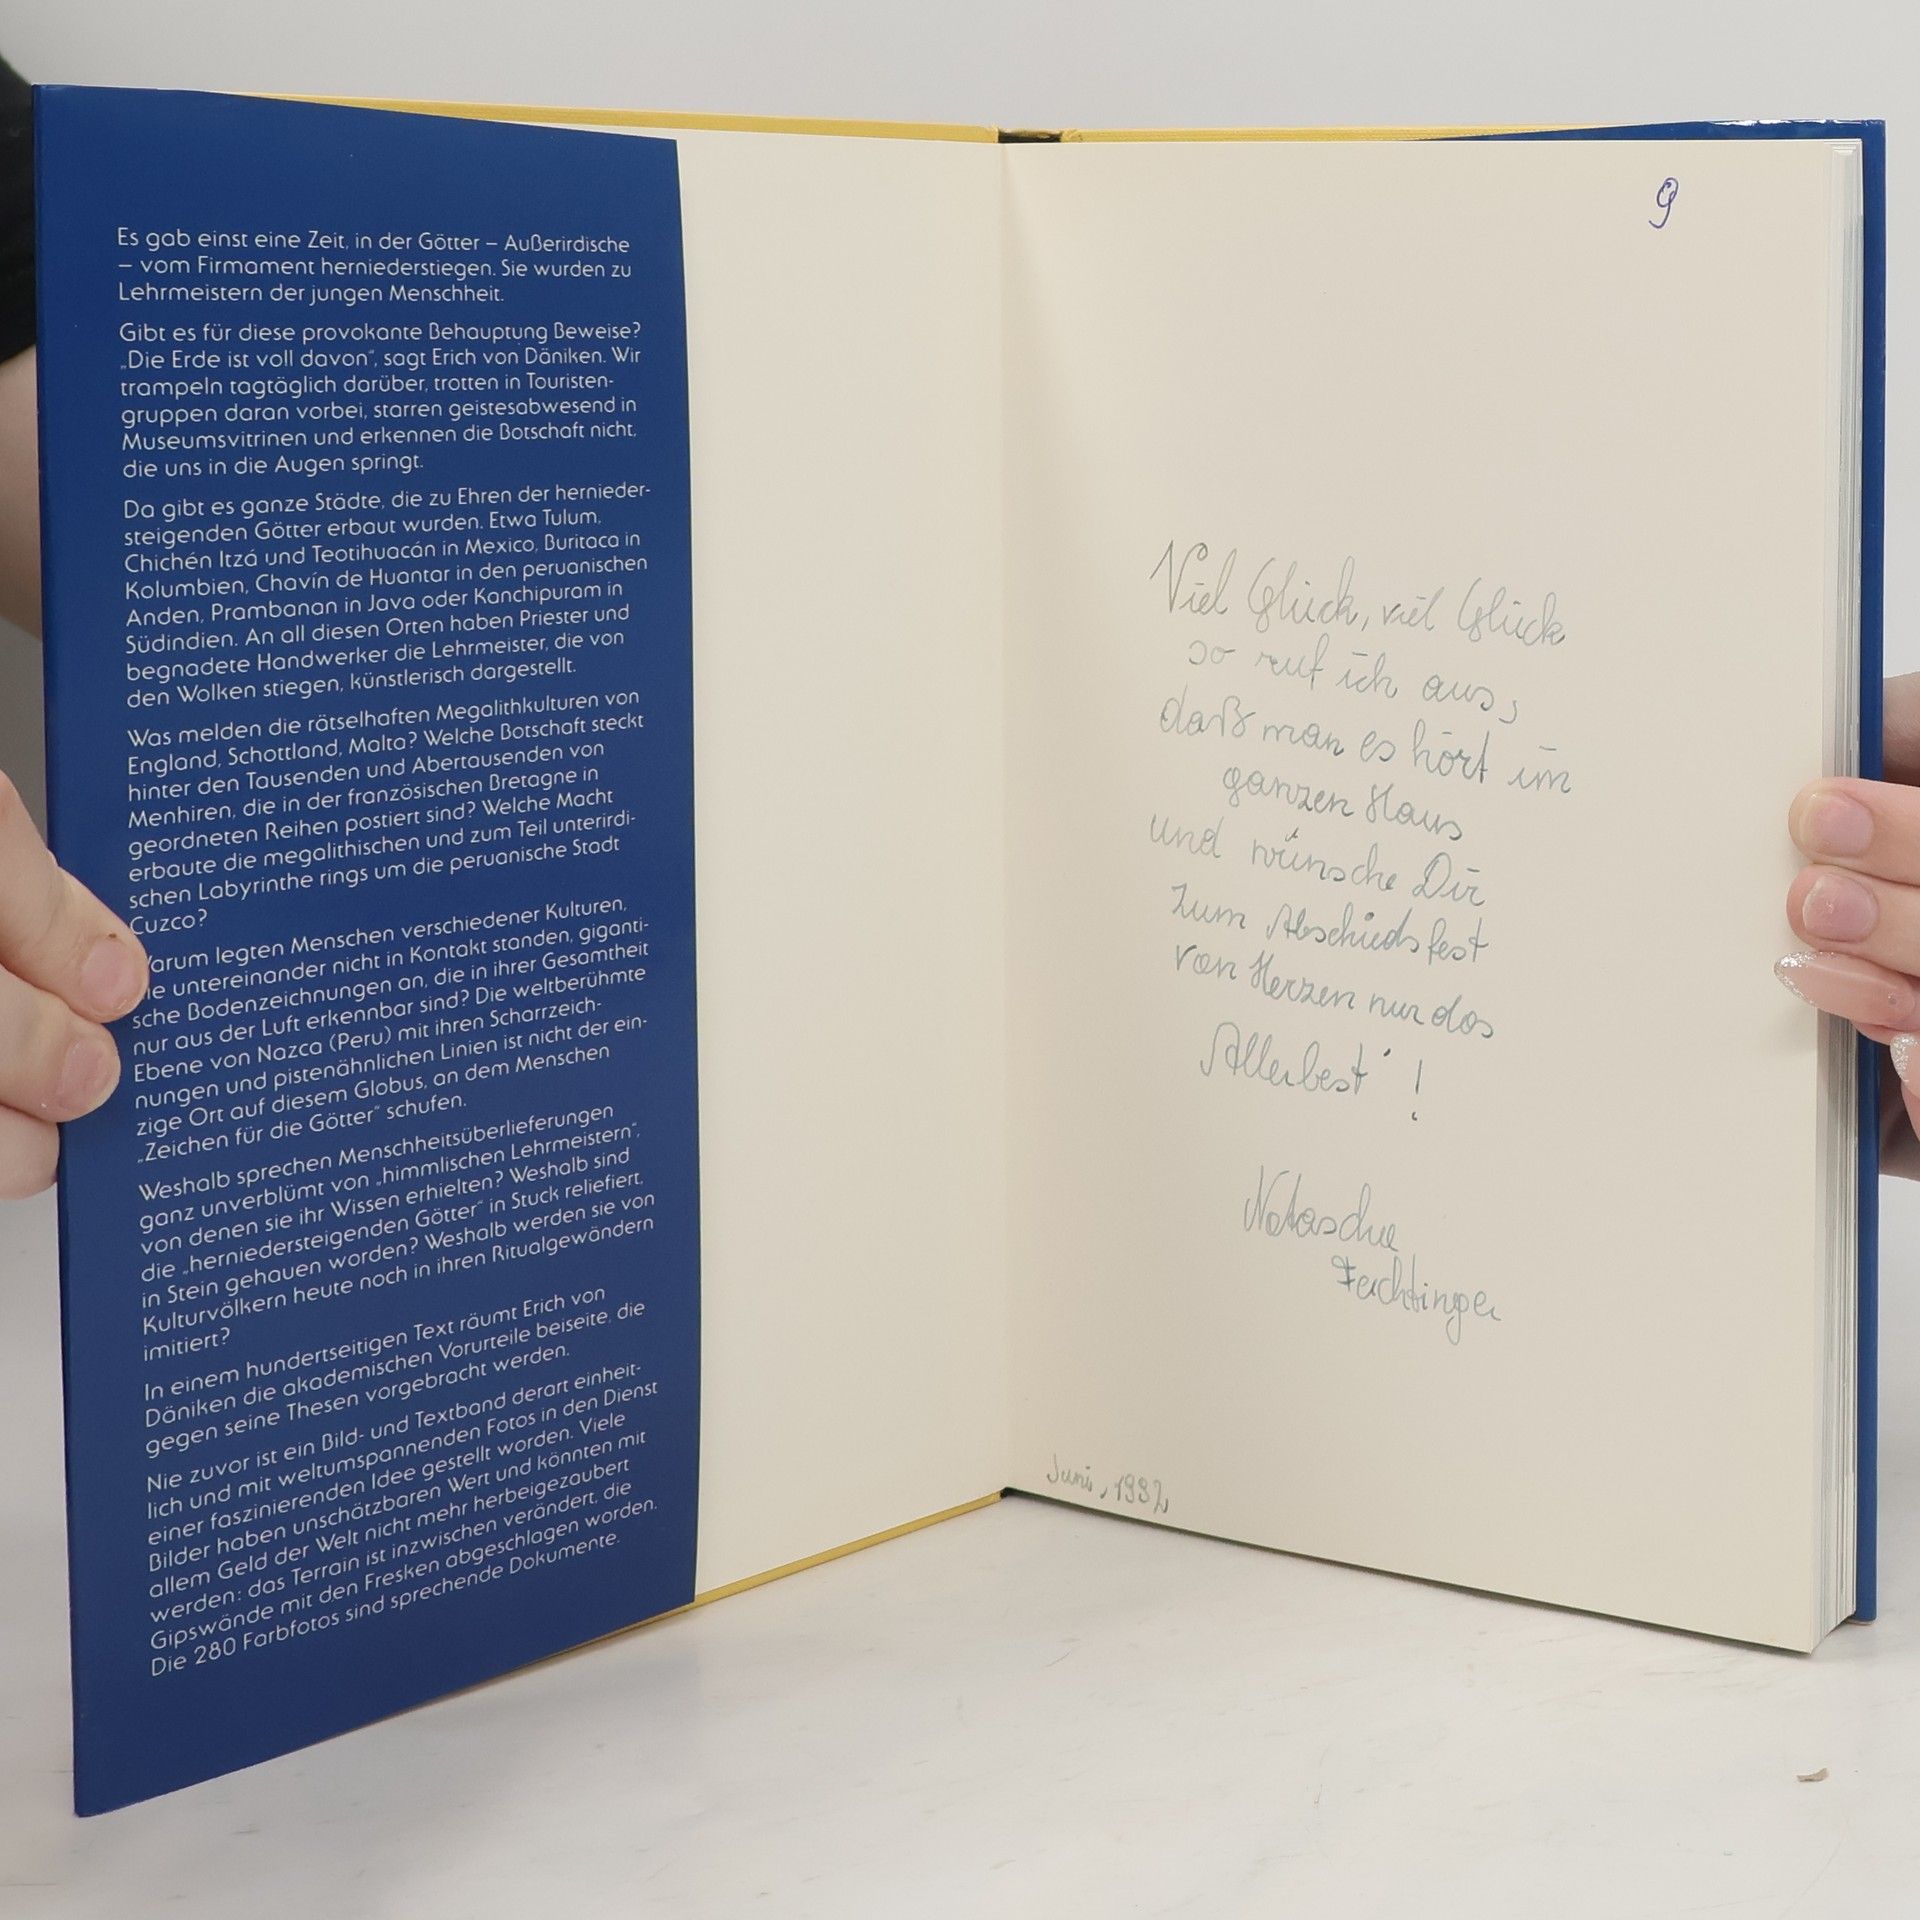 Es gab einst eine Zeit, in der Götter – Außerirdische
– vom Firmament herniederstiegen. Sie wurden zu
Lehrmeistern der jungen Menschheit.
Gibt es für diese provokante Behauptung Beweise?
„Die Erde ist voll davon“, sagt Erich von Däniken. Wir
trampeln tagtäglich darüber, trotten in Touristen-
gruppen daran vorbei, starren geistesabwesend in
Museumsvitrinen und erkennen die Botschaft nicht,
die uns in die Augen springt.
Da gibt es ganze Städte, die zu Ehren der hernieder-
steigenden Götter erbaut wurden. Etwa Tulum,
Chichén Itzá und Teotihuacán in Mexico, Buritaca in
Kolumbien, Chavín de Huantar in den peruanischen
Anden, Prambanan in Java oder Kanchipuram in
Südindien. An all diesen Orten haben Priester und
begnadete Handwerker die Lehrmeister, die von
den Wolken stiegen, künstlerisch dargestellt.
Was melden die rätselhaften Megalithkulturen von
England, Schottland, Malta? Welche Botschaft steckt
hinter den Tausenden und Abertausenden von
Menhiren, die in der französischen Bretagne in
geordneten Reihen postiert sind? Welche Macht
erbaute die megalithischen und zum Teil unterirdi-
schen Labyrinthe rings um die peruanische Stadt
Cuzco?
arum legten Menschen verschiedener Kulturen,
ie untereinander nicht in Kontakt standen, giganti-
sche Bodenzeichnungen an, die in ihrer Gesamtheit
nur aus der Luft erkennbar sind? Die weltberühmte
Ebene von Nazca (Peru) mit ihren Scharrzeich-
nungen und pistenähnlichen Linien ist nicht der ein-
zige Ort auf diesem Globus, an dem Menschen
„Zeichen für die Götter“ schufen.
Weshalb sprechen Menschheitsüberlieferungen
ganz unverblümt von „himmlischen Lehrmeistern“,
von denen sie ihr Wissen erhielten? Weshalb sind
die „herniedersteigenden Götter“ in Stuck reliefiert,
in Stein gehauen worden? Weshalb werden sie von
Kulturvölkern heute noch in ihren Ritualgewändern
imitiert?
In einem hundertseitigen Text räumt Erich von
Däniken die akademischen Vorurteile beiseite, die
gegen seine Thesen vorgebracht werden.
Nie zuvor ist ein Bild- und Textband derart einheit-
lich und mit weltumspannenden Fotos in den Dienst
einer faszinierenden Idee gestellt worden. Viele
Bilder haben unschätzbaren Wert und könnten mit
allem Geld der Welt nicht mehr herbeigezaubert
werden: das Terrain ist inzwischen verändert, die
Gipswände mit den Fresken abgeschlagen worden.
Die 280 Farbfotos sind sprechende Dokumente.
9
Viel Glück, viel Glück
so ruf ich aus,
daß man es hört im
ganzen Haus
und wünsche Dir
zum Abschiedsfest
von Herzen nur das
Allerbest' !
Natascha
Feichtinger
Juni, 1992